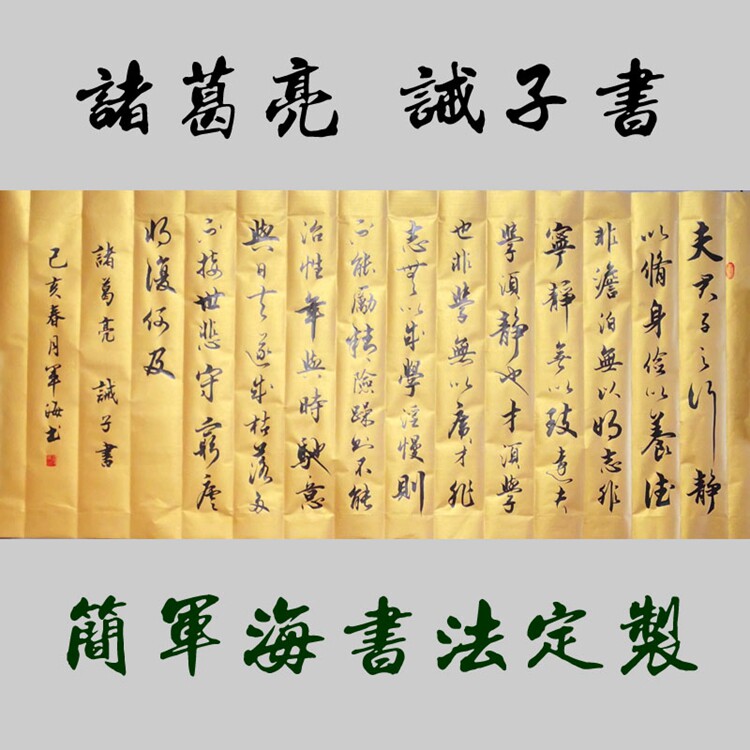 諸葛亮 誡子書
夫君子之行静
以脩身儉以養德
非澹泊無以明志非
寧静無以致遠夫
學須静也才須學
也非學無以廣才非
志無以成學淫慢則
不能勵精險躁則不能
治性年與時馳意
與日去遂成枯落多
不接世悲守窮廬
將復何及
諸葛亮 誡子書
己亥春月軍海书
簡軍海書法定製